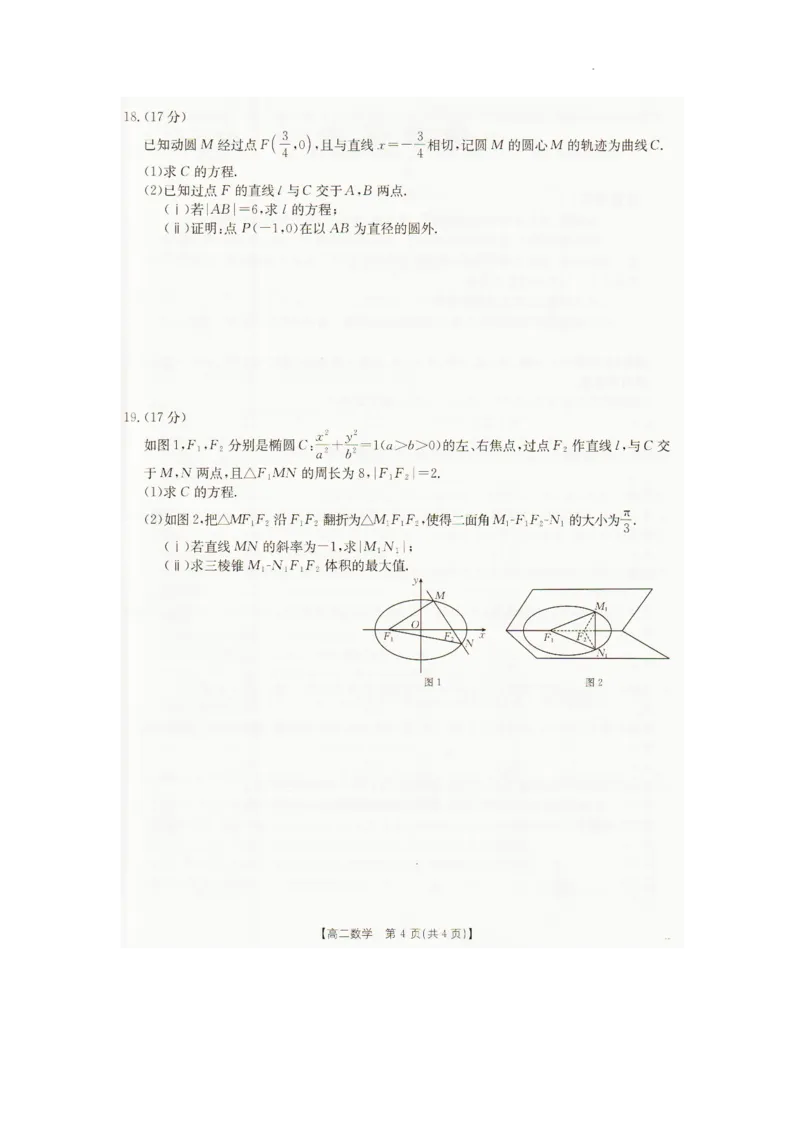 18.(17分)
已知动圆M经过点F(3/4,0),且与直线x=-3/4相切,记圆M的圆心M的轨迹为曲线C.
(1)求C的方程.
(2)已知过点F的直线l与C交于A,B两点.
(ⅰ)若|AB|=6,求l的方程;
(ⅱ)证明:点P(-1,0)在以AB为直径的圆外.
19.(17分)
如图1,F₁,F₂分别是椭圆C:x²/a²+y²/b²=1(a>b>0)的左、右焦点,过点F₂作直线l,与C交
于M,N两点,且△F₁MN的周长为8,|F₁F₂|=2.
(1)求C的方程.
(2)如图2,把△MF₁F₂沿F₁F₂翻折为△M₁F₁F₂,使得二面角M₁-F₁F₂-N₁的大小为π/3.
(ⅰ)若直线MN的斜率为-1,求|M₁N₁|;
(ⅱ)求三棱锥M₁-N₁F₁F₂体积的最大值.
y
M
O
F₁
F₂
N
x
图1
M₁
F₁
F₂
N₁
图2
【高二数学 第4页(共4页)】